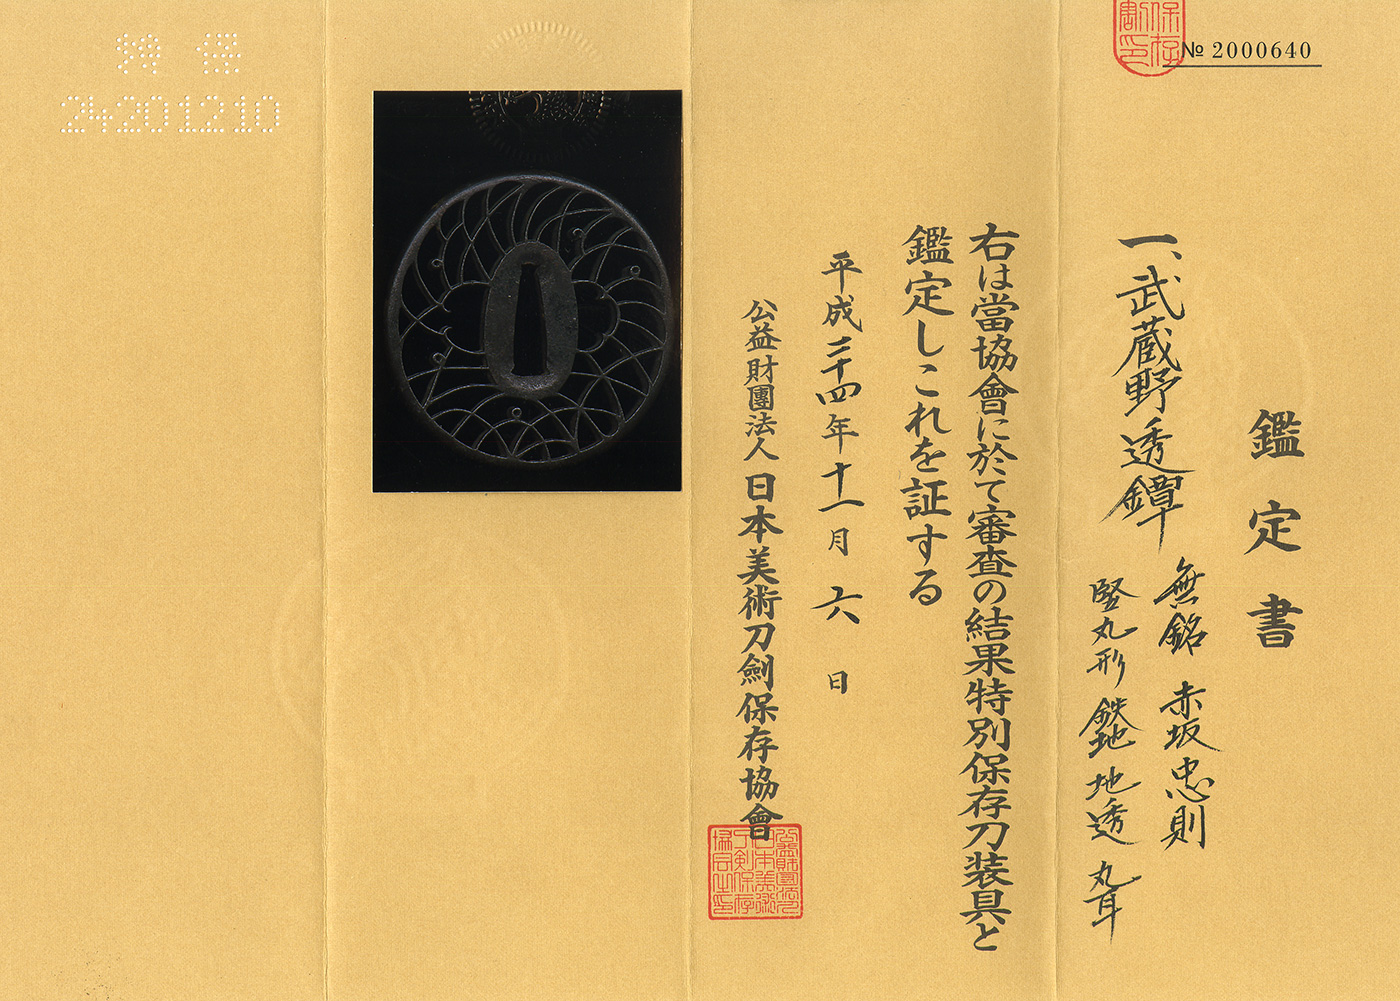 № 2000640
鑑定書
一、武蔵野透鐔
無銘 赤坂忠則
竪丸形 鉄地 地透 丸耳
右は當協會に於て審査の結果特別保存刀装具と
鑑定しこれを証する
平成二十四年十一月六日
公益財團法人日本美術刀劍保存協會
特保
24201210
保存
割印